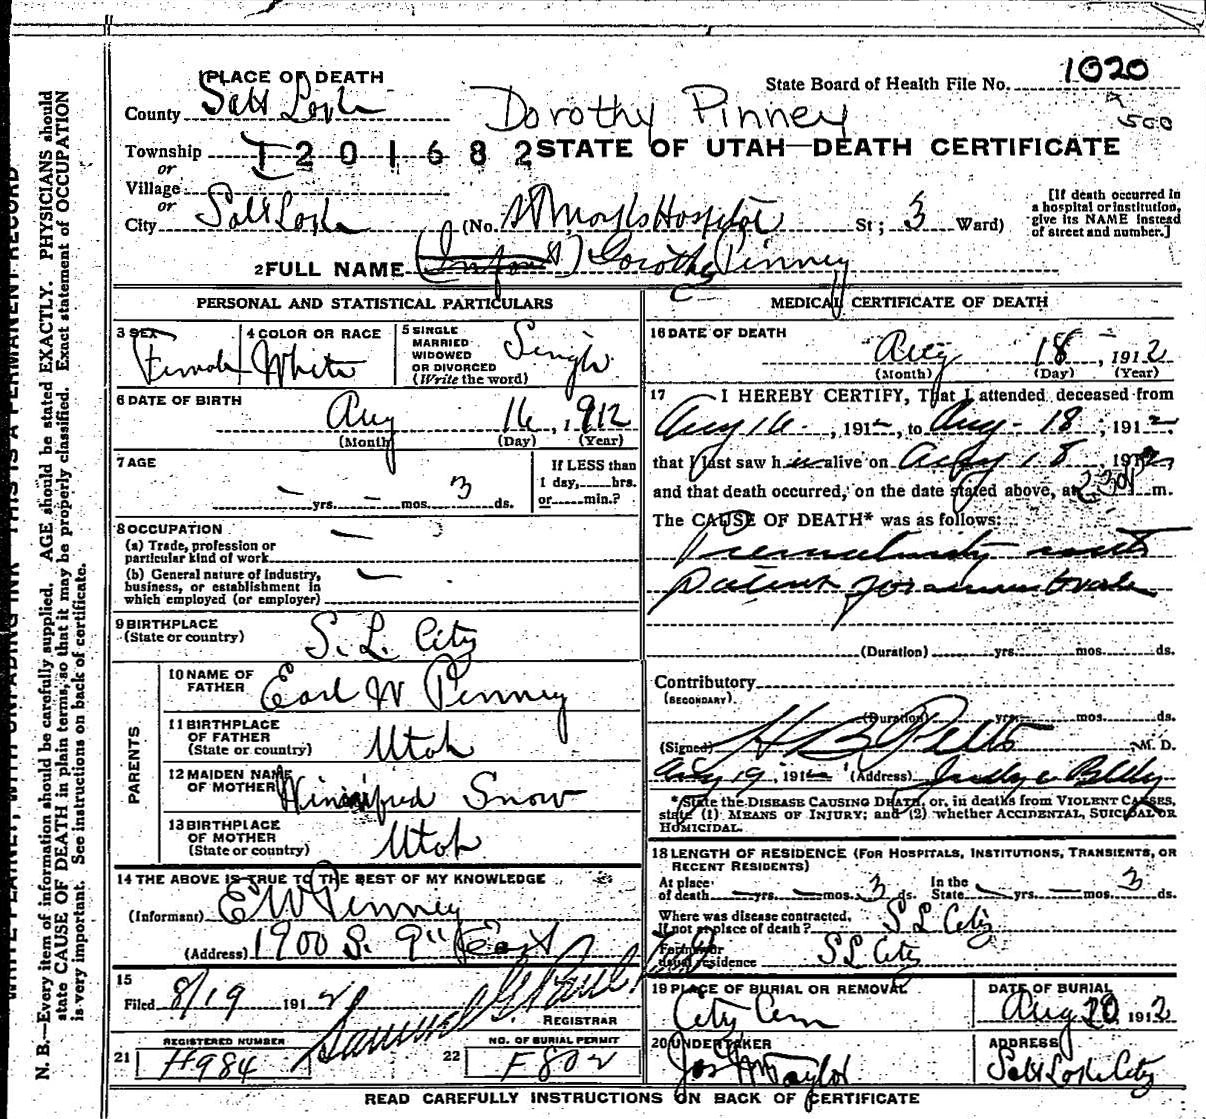 1 PLACE OF DEATH
State Board of Health File No. 1020
County Salt Lake
Dorothy Pinney
500
Township 1201682 STATE OF UTAH—DEATH CERTIFICATE
or
Village
or
City Salt Lake (No. St Marks Hospital St; 3 Ward)
[If death occurred in a hospital or institution, give its NAME instead of street and number.]
2 FULL NAME (Infant) Dorothy Pinney
PERSONAL AND STATISTICAL PARTICULARS
3 SEX Female
4 COLOR OR RACE White
5 SINGLE MARRIED WIDOWED OR DIVORCED (Write the word) Single
6 DATE OF BIRTH
Aug 16, 1912
(Month) (Day) (Year)
7 AGE
— yrs. — mos. 3 ds.
If LESS than 1 day, hrs. or min.?
8 OCCUPATION
(a) Trade, profession or particular kind of work —
(b) General nature of industry, business, or establishment in which employed (or employer) —
9 BIRTHPLACE (State or country) S. L. City
PARENTS
10 NAME OF FATHER Earl W Pinney
11 BIRTHPLACE OF FATHER (State or country) Utah
12 MAIDEN NAME OF MOTHER Winnifred Snow
13 BIRTHPLACE OF MOTHER (State or country) Utah
14 THE ABOVE IS TRUE TO THE BEST OF MY KNOWLEDGE
(Informant) E W Pinney
(Address) 1900 S. 9" East
15
Filed 8/19 1912
REGISTRAR
21 REGISTERED NUMBER H984
22 NO. OF BURIAL PERMIT F802
MEDICAL CERTIFICATE OF DEATH
16 DATE OF DEATH
Aug 18, 1912
(Month) (Day) (Year)
17 I HEREBY CERTIFY, That I attended deceased from
Aug 16, 1912, to Aug. 18, 1912,
that I last saw her alive on Aug 18 1912,
and that death occurred, on the date stated above, at m.
The CAUSE OF DEATH* was as follows:
Prematurity with
patent foramen ovale
(Duration) yrs. mos. ds.
Contributory
(SECONDARY)
(Duration) yrs. mos. ds.
(Signed) H B M. D.
Aug 19, 1912 (Address) Judge Bldg
*State the DISEASE CAUSING DEATH, or, in deaths from VIOLENT CAUSES, state (1) MEANS OF INJURY; and (2) whether ACCIDENTAL, SUICIDAL OR HOMICIDAL.
18 LENGTH OF RESIDENCE (FOR HOSPITALS, INSTITUTIONS, TRANSIENTS, OR RECENT RESIDENTS)
At place of death — yrs. — mos. 3 ds. In the State — yrs. — mos. 3 ds.
Where was disease contracted, if not at place of death? S L City
Former or usual residence S L City
19 PLACE OF BURIAL OR REMOVAL City Cem
DATE OF BURIAL Aug 20 1912
20 UNDERTAKER Jos Wm Taylor
ADDRESS Salt Lake City
READ CAREFULLY INSTRUCTIONS ON BACK OF CERTIFICATE
WRITE PLAINLY, WITH UNFADING INK—THIS IS A PERMANENT RECORD
N. B.—Every item of information should be carefully supplied. AGE should be stated EXACTLY. PHYSICIANS should
state CAUSE OF DEATH in plain terms, so that it may be properly classified. Exact statement of OCCUPATION
is very important. See instructions on back of certificate.